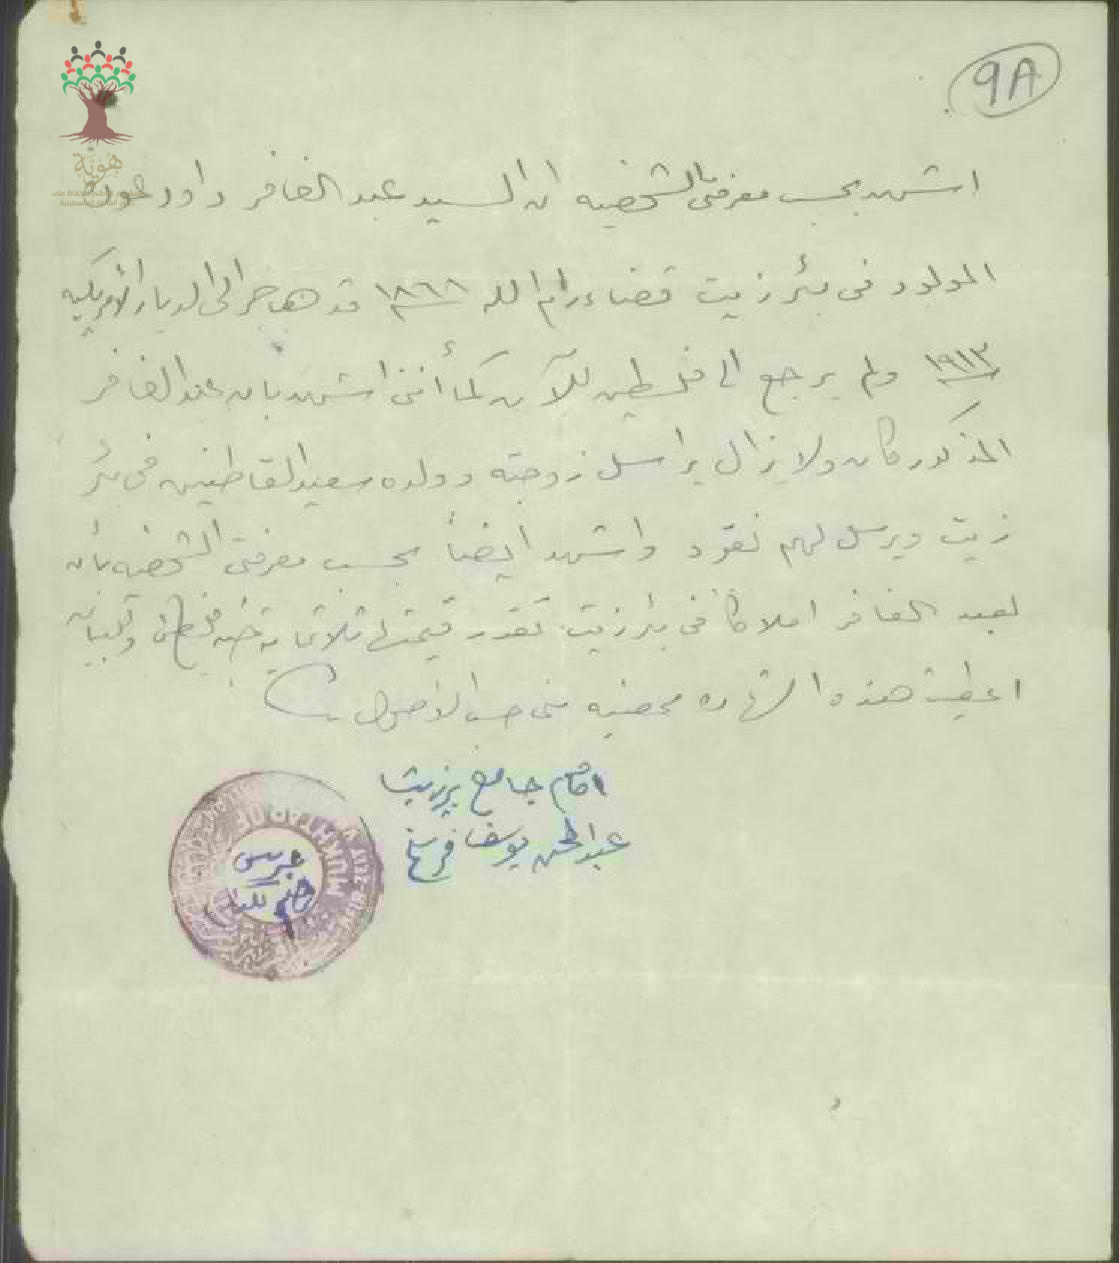 9A
هوية
اشهد بحسب معرفتي الشخصيه ان السيد عبد الغافر داود
المولود في بئر زيت قضاء رام الله ١٨٦٨ قد هاجر الى الديار الأمريكيه
١٩١٣ ولم يرجع الى فلسطين للآن كما أنني اشهد بان عبد الغافر
المذكور كان ولا يزال يراسل زوجته وولده سعيد القاطنين في بئر
زيت ويرسل لهم نقود واشهد ايضاً بحسب معرفتي الشخصيه بأن
لعبد الغافر املاكاً في بئر زيت تقدر قيمتها ثلاثماية جنيه فلسطيني وللبيان
اعطيت هذه الشهاده ممضيه مني حسب الاصول
امام جامع بيرزيت
عبد المحسن يوسف
MUKHTAR OF